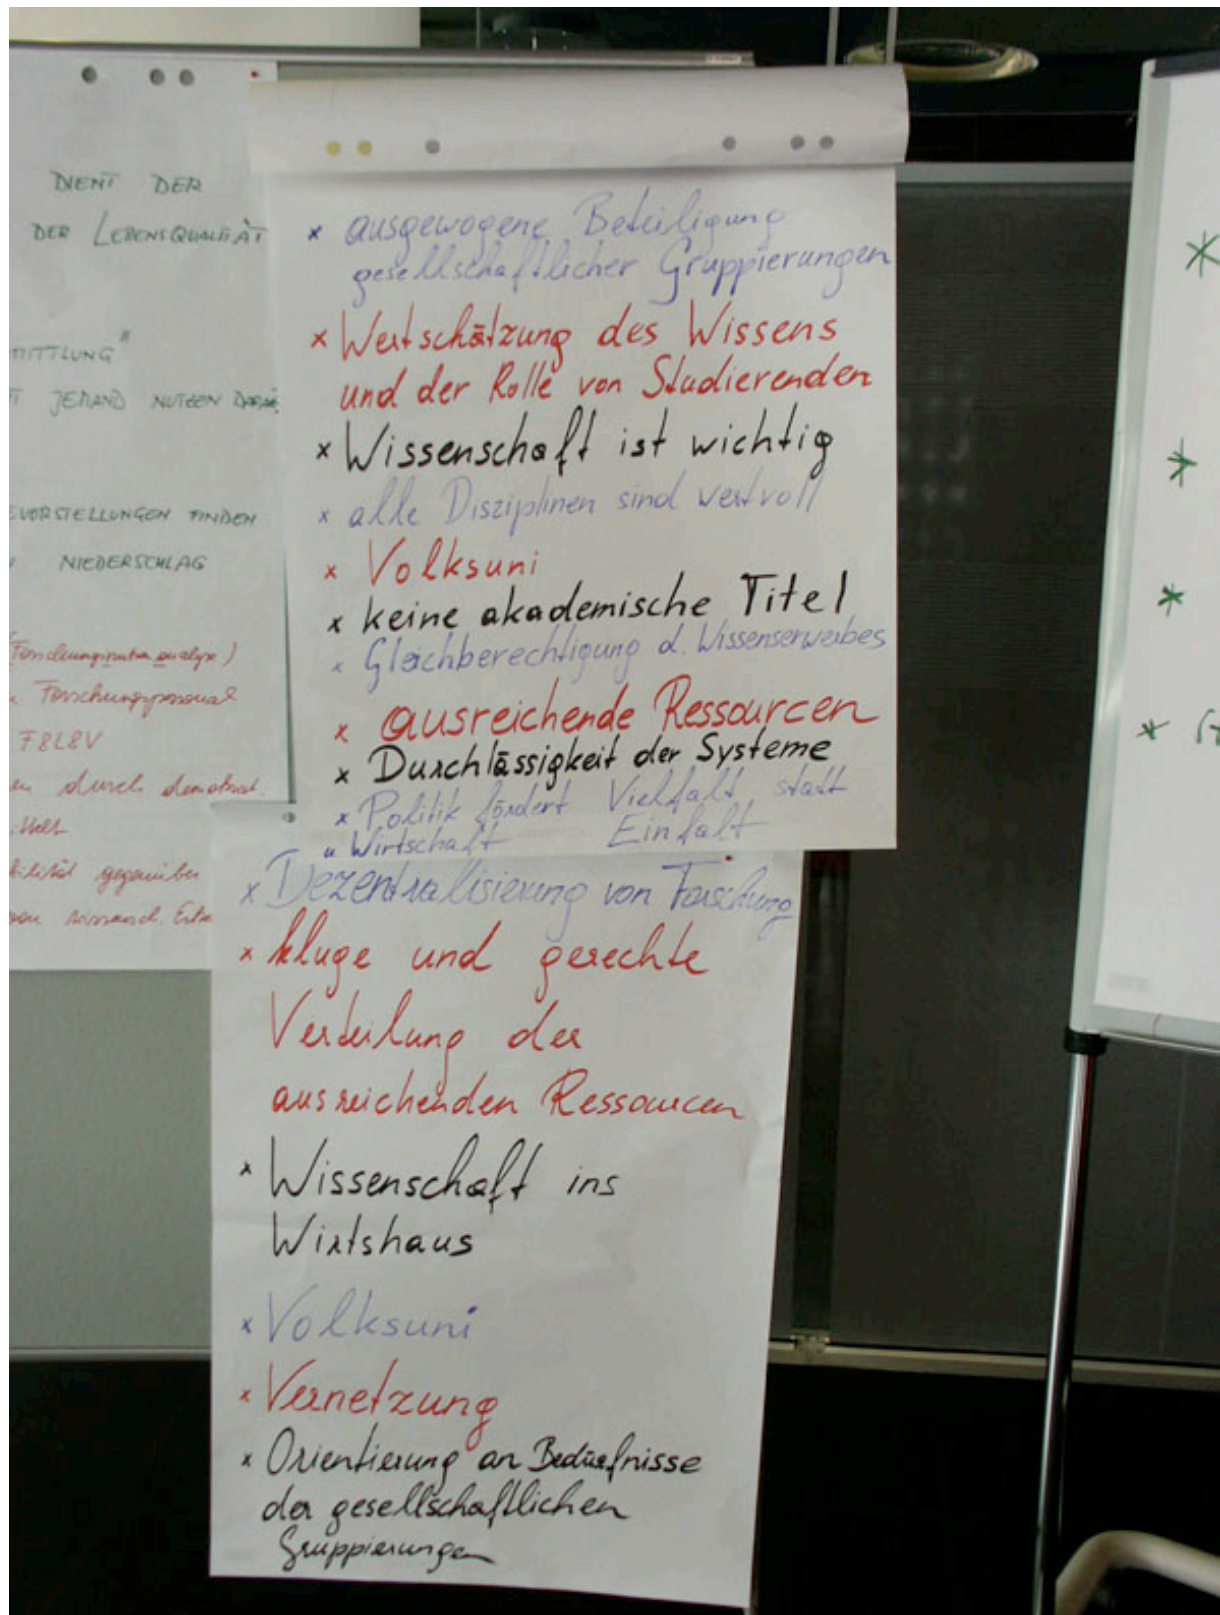 DIENT DER
DER LEBENSQUALITÄT
MITTLUNG"
JEMAND NUTZEN
EVORSTELLUNGEN FINDEN
NIEDERSCHLAG
Forschungspersonal
F8L8V
durch
gegenüber
x ausgewogene Beteiligung
gesellschaftlicher Gruppierungen
x Wertschätzung des Wissens
und der Rolle von Studierenden
x Wissenschaft ist wichtig
x alle Disziplinen sind wertvoll
x Volksuni
x keine akademische Titel
x Gleichberechtigung d. Wissenserwerbes
x ausreichende Ressourcen
x Durchlässigkeit der Systeme
x Politik fördert Vielfalt statt
u Wirtschaft Einfalt
x Dezentralisierung von Forschung
x kluge und gerechte
Verteilung der
ausreichenden Ressourcen
x Wissenschaft ins
Wirtshaus
x Volksuni
x Vernetzung
x Orientierung an Bedürfnisse
der gesellschaftlichen
Gruppierungen